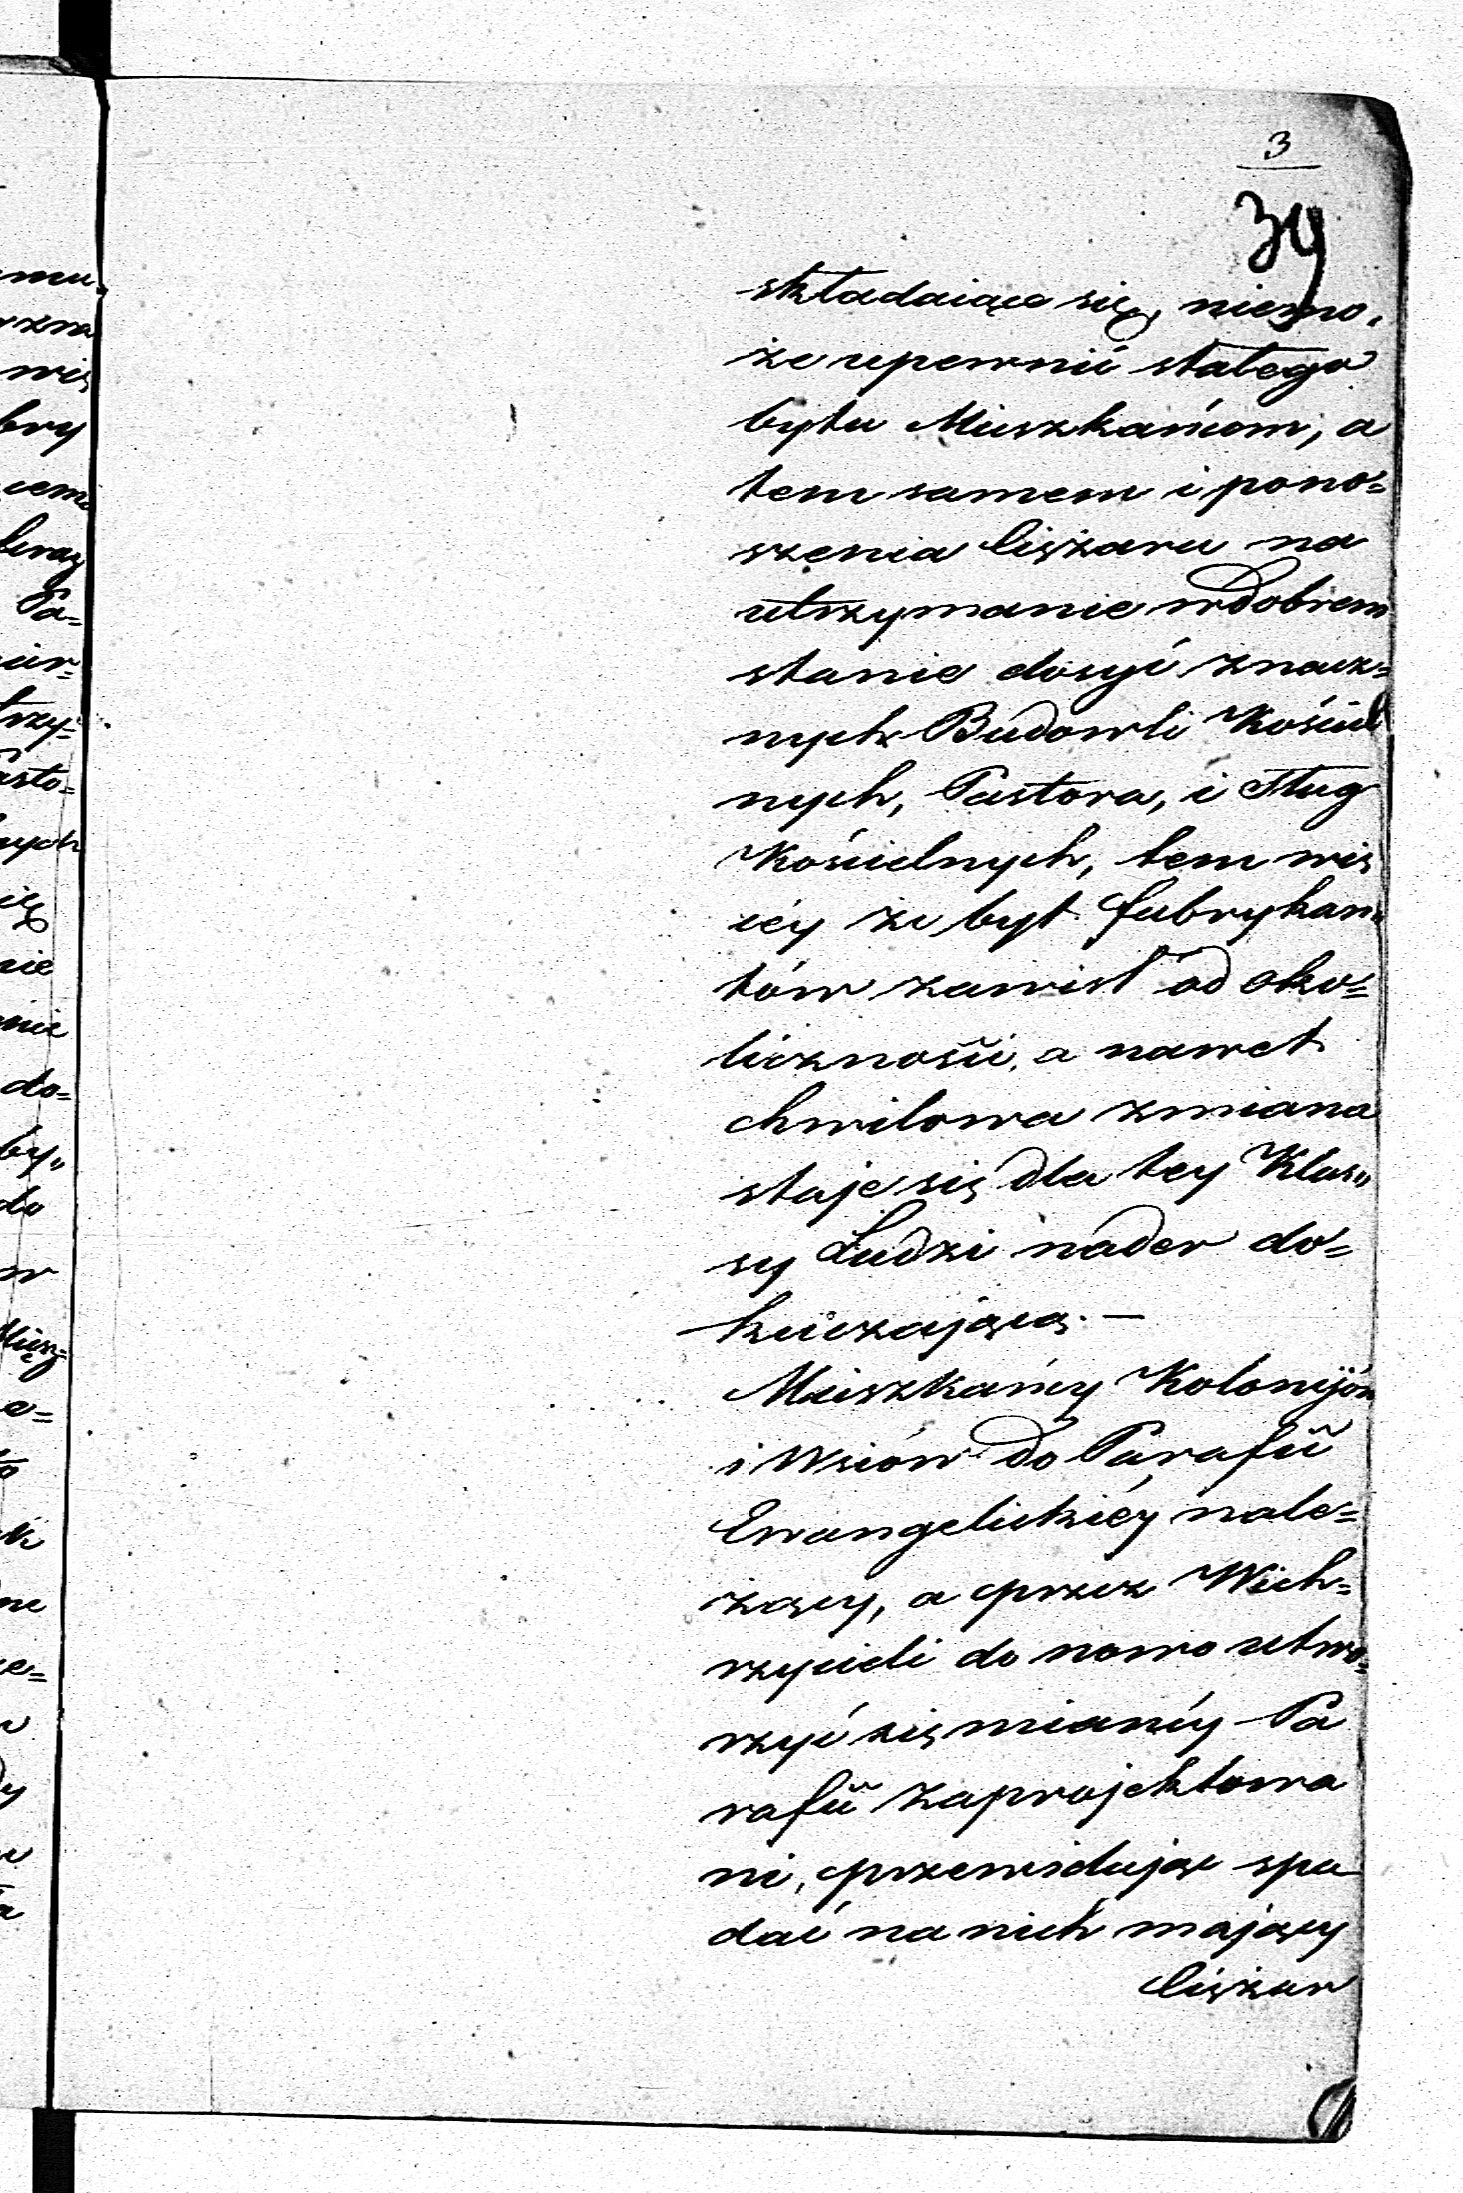 3
34
składaiące się, niemo,
że upewnić stałego
bytu Mieszkańcom, a
tem samem i pono=
szenia Ciężaru na
utrzymanie w dobrem
stanie dosyć znacz=
nych Budowli Kościel
nych, Pastora, i Sług
Kościelnych, tem wię
céy że byt fabrykan„
tów zawisł od oko=
liczności, a nawet
chwilowa zmiana
staje się dla tey Klas„
sy Ludzi nader do=
kuczającą. —
Mieszkańcy Kolonijów
i Wsiów do Parafii
Ewangelickiéy nale=
żący, a przez Wich=
rzycieli do nowo utwo=
rzyć się mianéy Pa
rafii zaprojektowa
ni, przewidując spa
dać na nich mający
Ciężar
mu,
wię
bry
Pa=
trzy=
asto=
nych
ię
nie
do=
by„
do
w
e=